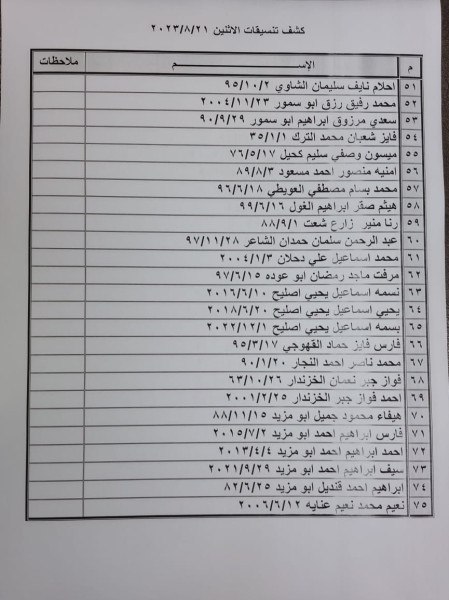 كشف تنسيقات الاثنين ٢٠٢٣/٨/٢١
م الإســـــــم ملاحظات
٥١ احلام نايف سليمان الشاوي ٩٥/١٠/٢
٥٢ محمد رفيق رزق ابو سمور ٢٠٠٤/١١/٢٣
٥٣ سعدي مرزوق ابراهيم ابو سمور ٩٠/٩/٢٩
٥٤ فايز شعبان محمد الترك ٣٥/١/١
٥٥ ميسون وصفي سليم كحيل ٧٦/٥/١٧
٥٦ امنيه منصور احمد مسعود ٨٩/٨/٣
٥٧ محمد بسام مصطفي العويطي ٩٦/٦/١٨
٥٨ هيثم صقر ابراهيم الغول ٩٩/٦/١٦
٥٩ رنا منير زارع شعت ٨٨/٩/١
٦٠ عبد الرحمن سلمان حمدان الشاعر ٩٧/١١/٢٨
٦١ محمد اسماعيل علي دحلان ٢٠٠٤/١/٣
٦٢ مرفت ماجد رمضان ابو عوده ٩٧/٦/١٥
٦٣ نسمه اسماعيل يحيي اصليح ٢٠١٦/٦/١٠
٦٤ يحيي اسماعيل يحيي اصليح ٢٠١٨/٦/٢٠
٦٥ بسمه اسماعيل يحيي اصليح ٢٠٢٢/١٢/١
٦٦ فارس فايز حماد القهوجي ٩٥/٣/١٧
٦٧ محمد ناصر احمد النجار ٩٠/١/٢٠
٦٨ فواز جبر نعمان الخزندار ٦٣/١٠/٢٦
٦٩ احمد فواز جبر الخزندار ٢٠٠١/٢/٢٥
٧٠ هيفاء محمود جميل ابو مزيد ٨٨/١١/١٥
٧١ فارس ابراهيم احمد ابو مزيد ٢٠١٥/٧/٢
٧٢ احمد ابراهيم احمد ابو مزيد ٢٠١٣/٤/٤
٧٣ سيف ابراهيم احمد ابو مزيد ٢٠٢١/٩/٢٩
٧٤ ابراهيم احمد قنديل ابو مزيد ٨٢/٦/٢٥
٧٥ نعيم محمد نعيم عنايه ٢٠٠٦/٦/١٢